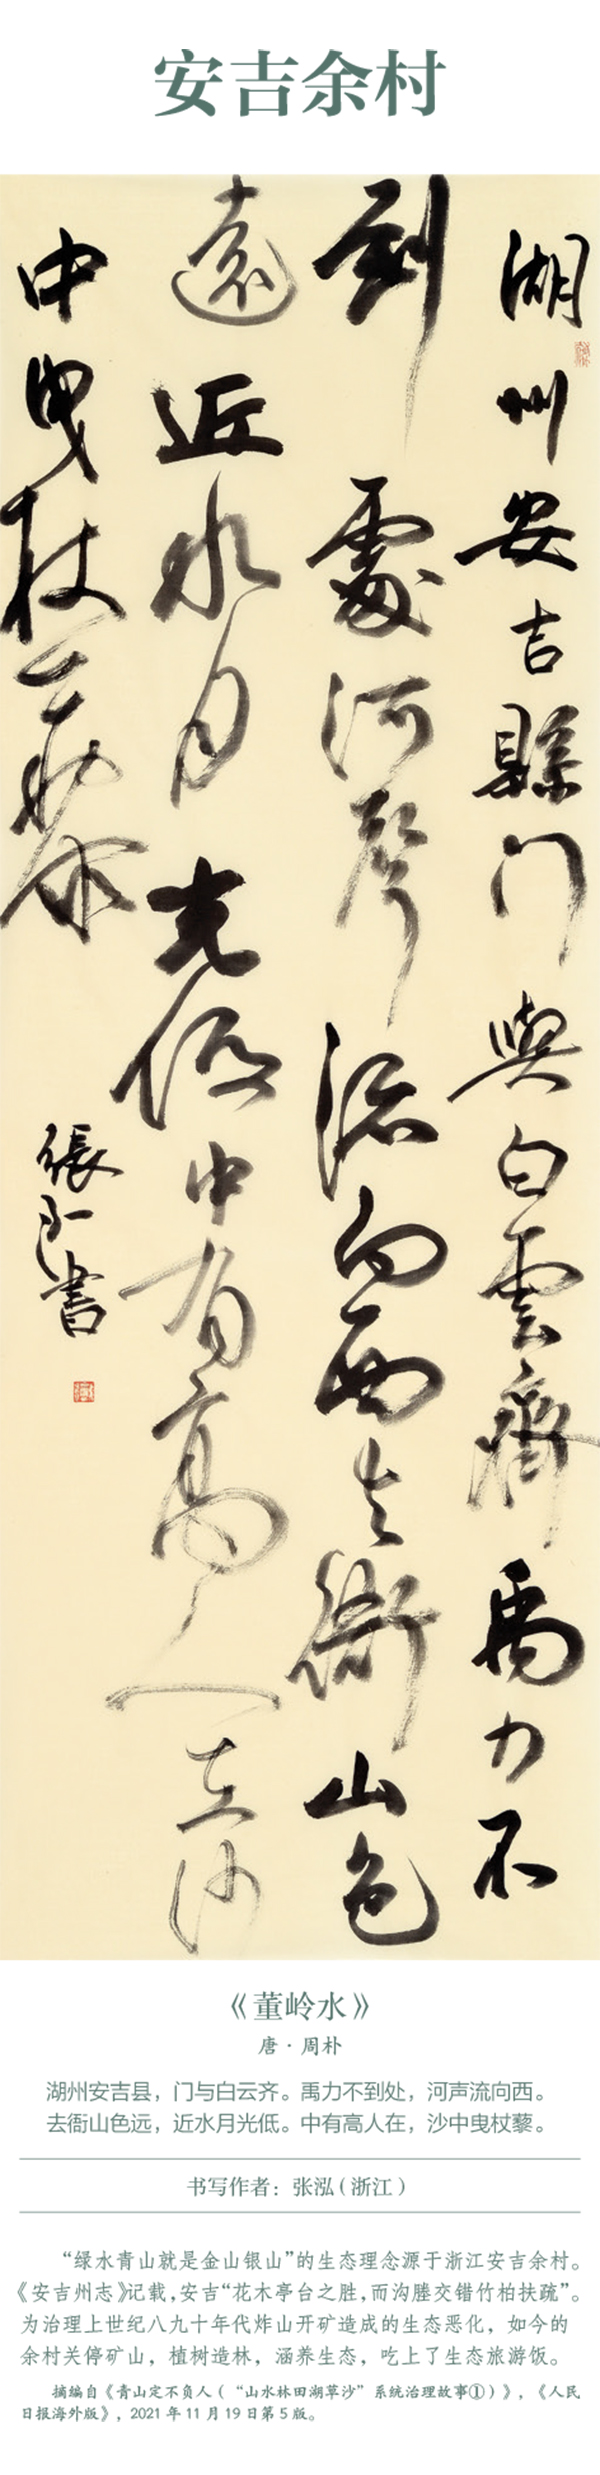 安吉余村
湖州安吉縣门與白雲齊禹力不
到處河聲流向西去衙山色
遠近水月光低中有高人在沙
中曳杖藜
張泓書
《董岭水》
唐·周朴
湖州安吉县，门与白云齐。禹力不到处，河声流向西。
去衙山色远，近水月光低。中有高人在，沙中曳杖藜。
书写作者：张泓（浙江）
“绿水青山就是金山银山”的生态理念源于浙江安吉余村。
《安吉州志》记载，安吉“花木亭台之胜，而沟塍交错竹柏扶疏”。
为治理上世纪八九十年代炸山开矿造成的生态恶化，如今的
余村关停矿山，植树造林，涵养生态，吃上了生态旅游饭。
摘编自《青山定不负人（“山水林田湖草沙”系统治理故事①）》，《人民
日报海外版》，2021 年 11 月 19 日第 5 版。